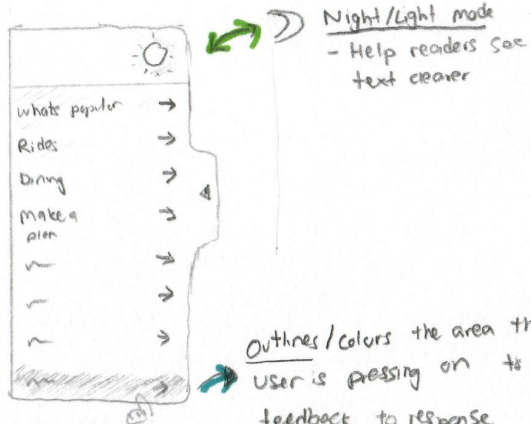 Night/Light mode
- Help readers see
text clearer
whats popular
Rides
Dining
make a
plan
Outlines/colors the area th
user is pressing on to
feedback to response